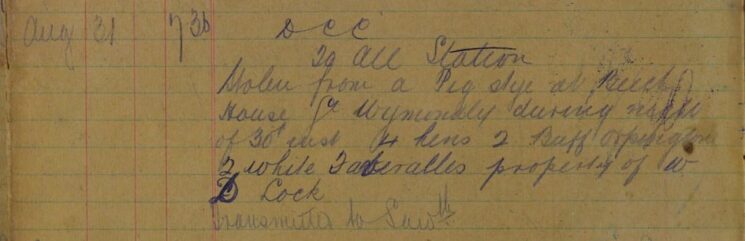 Aug 31 7 30 D C C
To All Station
Stolen from a Pig stye at Beech
House Gt Wymondly during night
of 30 inst 4 hens 2 Buff Orpington
2 white Faveralles property of W
D Lock
transmitted to Saw